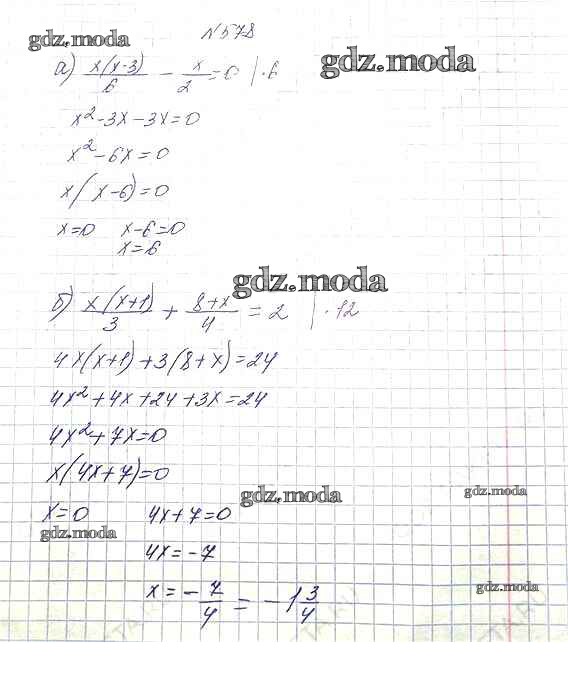 №578
gdz.moda
gdz.moda
а) x(x-3)/6 - x/2 = 0 | ·6
x² - 3x - 3x = 0
x² - 6x = 0
x(x-6) = 0
x=0 x-6=0
x=6
gdz.moda
б) x(x+1)/3 + (8+x)/4 = 2 | ·12
4x(x+1) + 3(8+x) = 24
4x² + 4x + 24 + 3x = 24
4x² + 7x = 0
x(4x+7) = 0
gdz.moda
gdz.moda
x=0 4x+7=0
gdz.moda
4x = -7
gdz.moda
x = -7/4 = -1 3/4